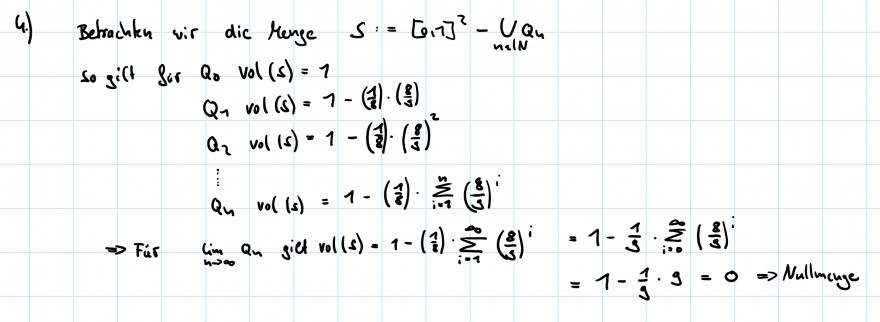 4.) Betrachten wir die Menge S := [0,1]² − ⋃_{n∈ℕ} Qₙ
so gilt für Q₀ vol(S) = 1
Q₁ vol(S) = 1 − (1/8)·(8/9)
Q₂ vol(S) = 1 − (1/8)·(8/9)²
⋮
Qₙ vol(S) = 1 − (1/8)·∑_{i=1}^{n} (8/9)^i
⇒ Für lim_{n→∞} Qₙ gilt vol(S) = 1 − (1/8)·∑_{i=1}^{∞} (8/9)^i = 1 − 1/9 · ∑_{i=0}^{∞} (8/9)^i
= 1 − 1/9 · 9 = 0 ⇒ Nullmenge